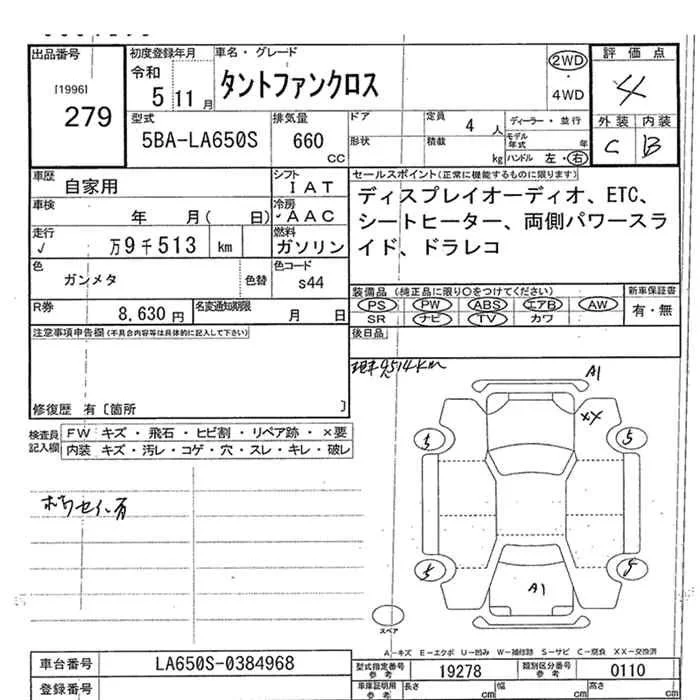 出品番号
[1996]
279
初度登録年月
令和
5 11 月
車名・グレード
タントファンクロス
2WD
・
4WD
評価点
4
外装 内装
C B
型式
5BA-LA650S
排気量
660
CC
ドア
形状
定員
4 人
積載
kg
ディーラー・並行
モデル年式 年
ハンドル 左・右
車歴
自家用
シフト
IAT
車検
年 月( 日)
冷房
AAC
走行
√ 万9千513 km
燃料
ガソリン
色
ガンメタ
色替
色コード
s44
R券
8,630 円
名変通知期限
月 日
セールスポイント(正常に機能するものに限ります)
ディスプレイオーディオ、ETC、
シートヒーター、両側パワースラ
イド、ドラレコ
装備品 (純正品に限り○をつけてください)
PS PW ABS エアB AW
SR ナビ TV カワ
新車保証書
有・無
注意事項申告欄(不具合内容等は具体的に記入して下さい)
後日品
修復歴 有〔箇所 〕
現車9514Km
検査員
記入欄
FW キズ・飛石・ヒビ割・リペア跡・×要
内装 キズ・汚レ・コゲ・穴・スレ・キレ・破レ
A1
XX
5 5
5 5
A1
スペア
A-キズ E-エクボ U-凹み W-補修跡 S-サビ C-腐食 XX-交換済
車台番号
LA650S-0384968
登録番号
型式指定番号
参考
19278
類別区分番号
参考
0110
車庫証明用
参考
長さ cm
幅 cm
高さ cm